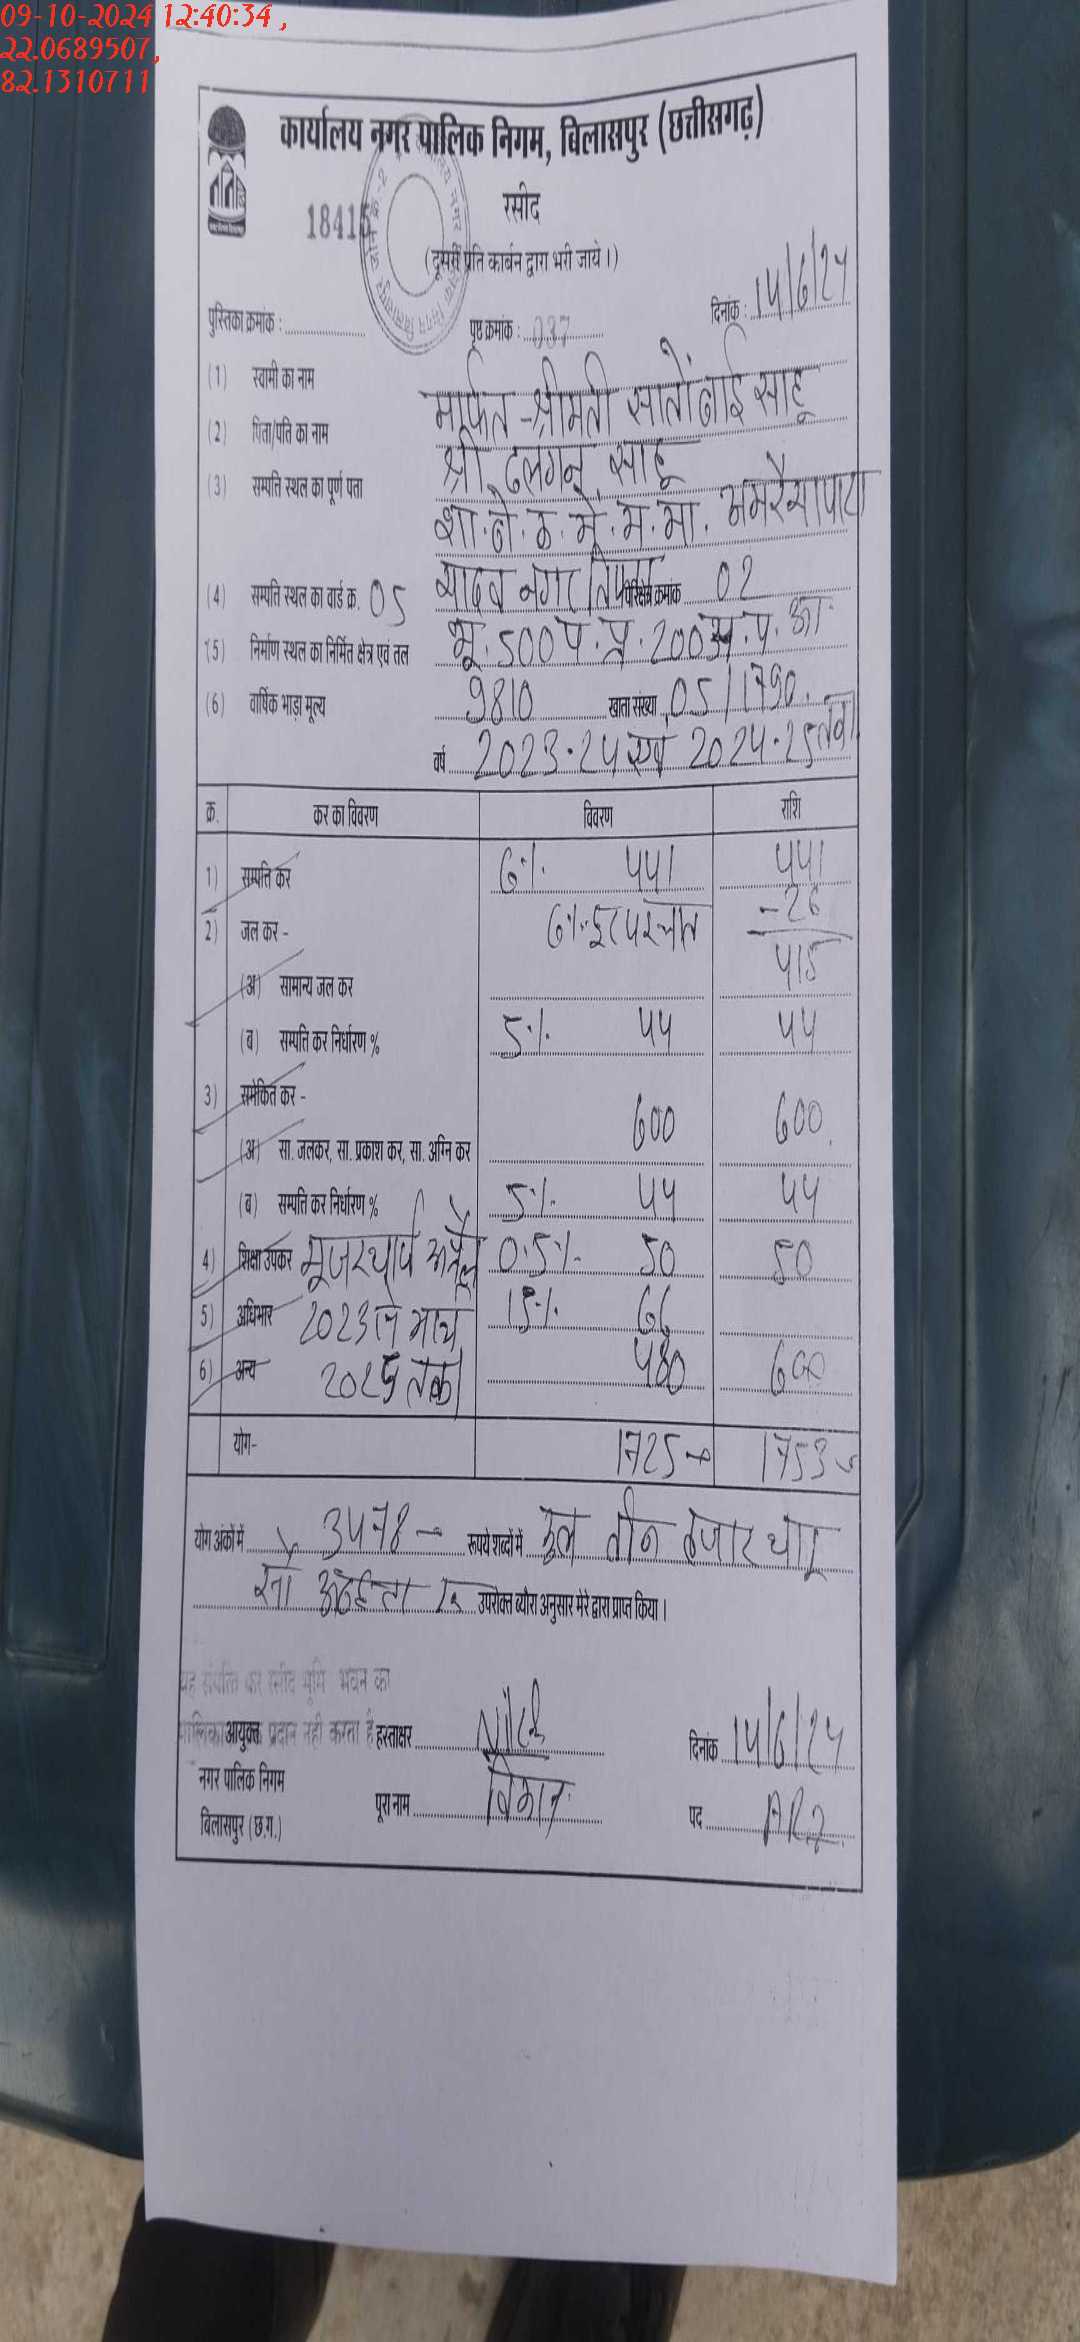 09-10-2024 12:40:34 ,
22.0689507,
82.1310711
कार्यालय नगर पालिक निगम, बिलासपुर (छत्तीसगढ़)
18415
रसीद
(दूसरी प्रति कार्बन द्वारा भरी जाये।)
पुस्तिका क्रमांक : पृष्ठ क्रमांक : 037 दिनांक : 14/6/24
(1) स्वामी का नाम मार्फत - श्रीमती साहू
(2) पिता/पति का नाम श्री साहू
(3) सम्पत्ति स्थल का पूर्ण पता
यादव नगर
(4) सम्पत्ति स्थल का वार्ड क्र. 05 परिक्षेत्र क्रमांक 02
(5) निर्माण स्थल का निर्मित क्षेत्र एवं तल भू. 500
(6) वार्षिक भाड़ा मूल्य 9810 खाता संख्या 05/1790
वर्ष 2023-24 एवं 2024-25 तक
क्र. कर का विवरण विवरण राशि
1) सम्पत्ति कर 6% 441 441
-26
6% छूट पश्चात 415
2) जल कर -
(अ) सामान्य जल कर
(ब) सम्पत्ति कर निर्धारण % 5% 44 44
3) समेकित कर -
600 600
(अ) सा. जलकर, सा. प्रकाश कर, सा. अग्नि कर
(ब) सम्पत्ति कर निर्धारण % 5% 44 44
4) शिक्षा उपकर यूजरचार्ज अप्रैल 0.5% 50 50
5) अधिभार 2023 से मार्च 15% 66
6) अन्य 2025 तक 480 600
योग- 1725 1753
योग अंकों में 3478 रूपये शब्दों में कुल तीन हजार चार
सौ उपरोक्त ब्यौरा अनुसार मेरे द्वारा प्राप्त किया।
यह संपत्ति कर रसीद भूमि भवन का
प्रदान नहीं करता है
आयुक्त हस्ताक्षर दिनांक 14/6/24
नगर पालिक निगम
पूरा नाम
बिलासपुर (छ.ग.) पद